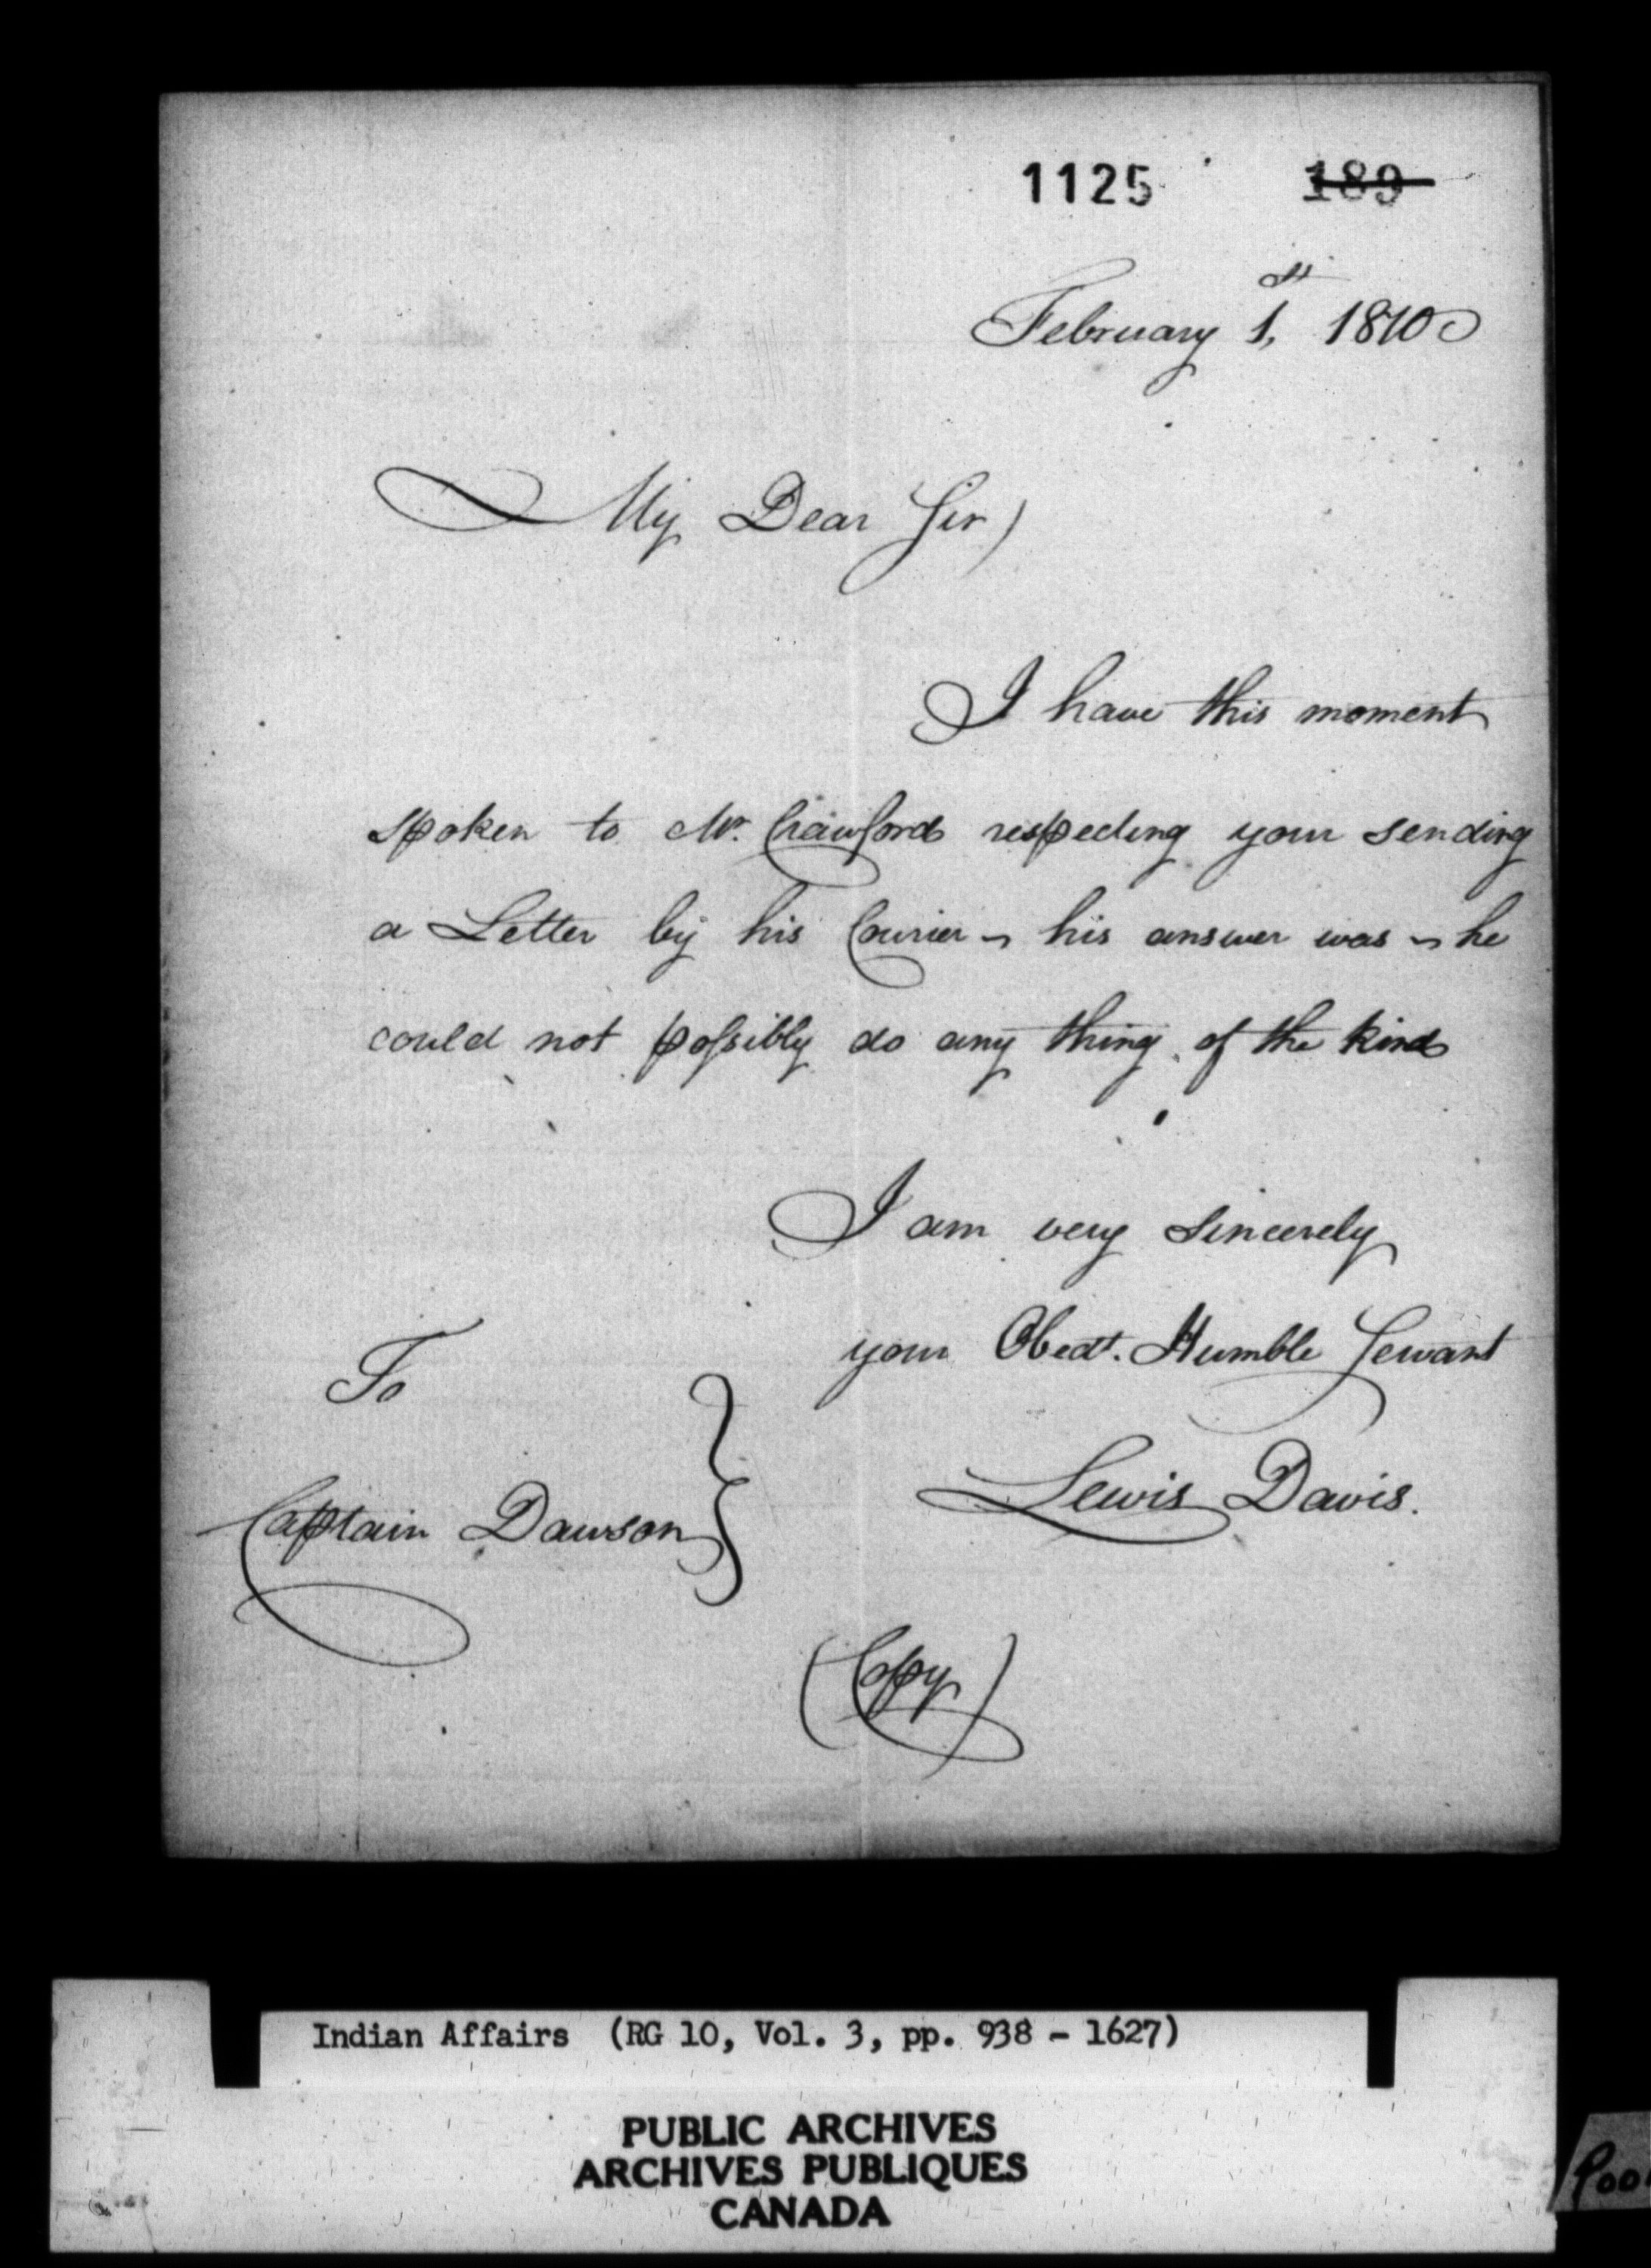 1125 189
February 1st, 1810
My Dear Sir
I have this moment
spoken to Mr. Crawford respecting your sending
a Letter by his Courier ~ his answer was ~ he
could not possibly do any thing of the kind
I am very sincerely
your Obedt. Humble Servant
Lewis Davis.
To
Captain Dawson
(Copy)
Indian Affairs (RG 10, Vol. 3, pp. 938 - 1627)
PUBLIC ARCHIVES
ARCHIVES PUBLIQUES
CANADA